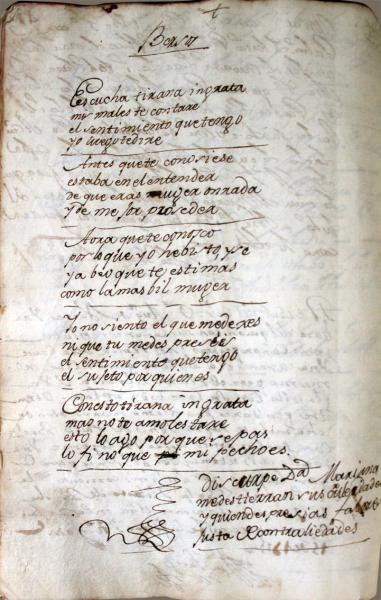 Berso
Escucha tirana ingrata
mys males te contare
el sentimiento que tengo
yo luego te dire
Antes que te conosiese
estaba en el entender
de que eras muger onrada
y de mejor proseder
Aora que te conosco
por lo que yo he bisto, y se
ya beo que te estimas
como la mas bil muger
Yo no siento el que me dexes
ni que tu me despresies
el sentimiento que tengo
el sujeto por quien es
Con esto tirana ingrata
mas no te amolestare
esto lo ago por que sepas
lo fino que mi pecho es.
Disculpe Da Mariana
me destierran sus crueldades
y quien despresias
justa contraliedades